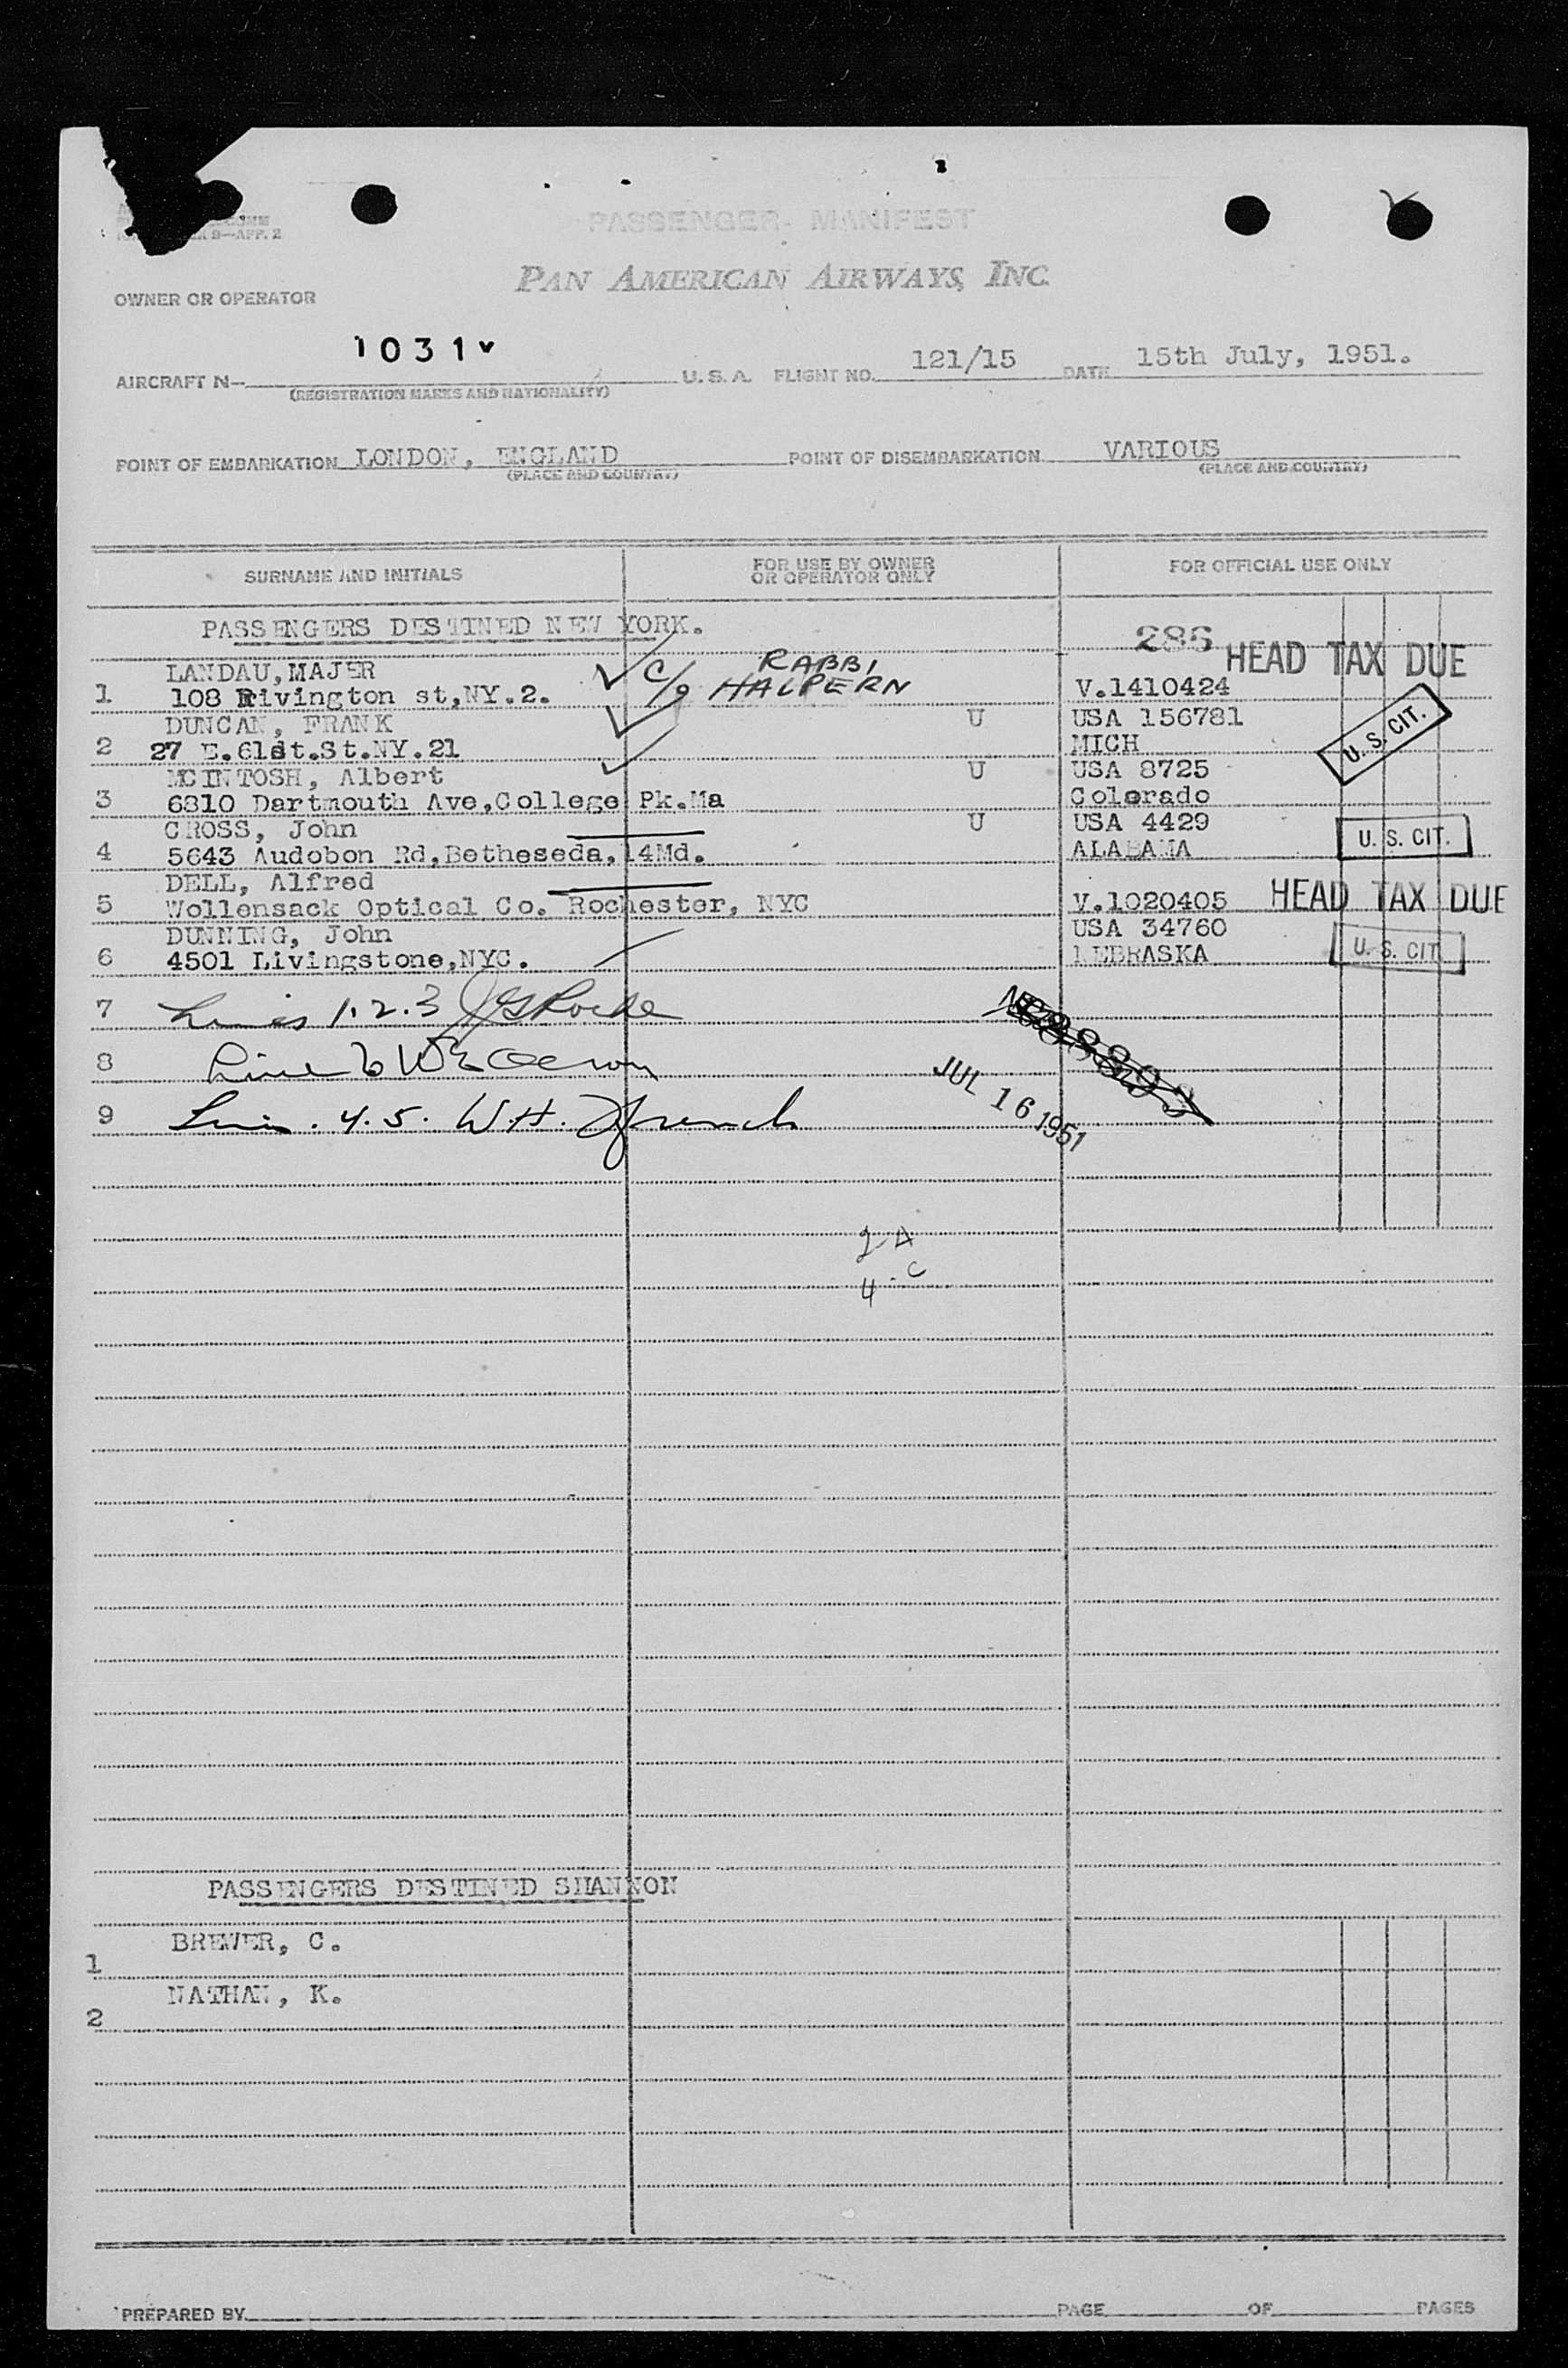 9—APP. 2
PASSENGER MANIFEST
PAN AMERICAN AIRWAYS, INC.
OWNER OR OPERATOR
1031
AIRCRAFT N- U.S.A. FLIGHT NO. 121/15 DATE 15th July, 1951.
(REGISTRATION MARKS AND NATIONALITY)
POINT OF EMBARKATION LONDON, ENGLAND POINT OF DISEMBARKATION VARIOUS
(PLACE AND COUNTRY) (PLACE AND COUNTRY)
SURNAME AND INITIALS FOR USE BY OWNER OR OPERATOR ONLY FOR OFFICIAL USE ONLY
PASSENGERS DESTINED NEW YORK.
286 HEAD TAX DUE
LANDAU,MAJER C/o RABBI
1 108 Rivington st,NY.2. HALPERN V.1410424
DUNCAN, FRANK U USA 156781
2 27 E.61st.St.NY.21 MICH U.S. CIT.
MCINTOSH, Albert U USA 8725
3 6810 Dartmouth Ave,College Pk.Ma Colorado
CROSS, John U USA 4429
4 5643 Audobon Rd,Betheseda.14Md. ALABAMA U.S. CIT.
DELL, Alfred
5 Wollensack Optical Co. Rochester, NYC V.1020405 HEAD TAX DUE
DUNNING, John USA 34760
6 4501 Livingstone,NYC. NEBRASKA U.S. CIT
7 Lines 1.2.3
8 Line 6
JUL 16 1951
9 Lines. 4.5. W.H. French
2 A
4 C
PASSENGERS DESTINED SHANNON
BREWER, C.
1
NATHAN, K.
2
PREPARED BY PAGE OF PAGES